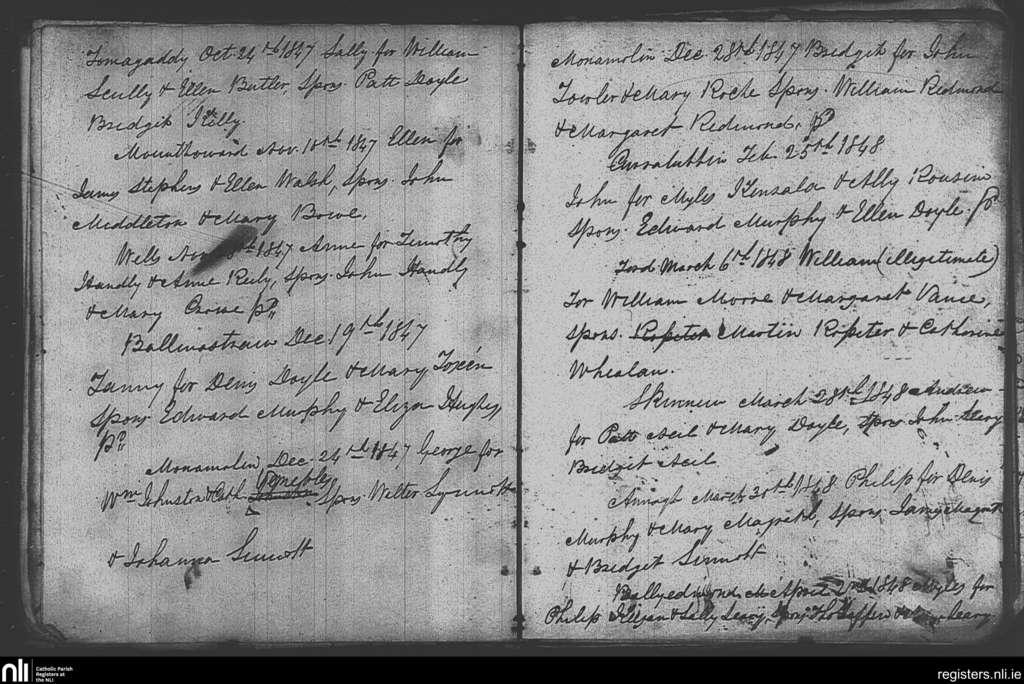 Tomagaddy Oct 24th 1847 Sally for William
Scully & Ellen Butler, Spons. Patt Doyle
Bridgit Kelly.
Mounthoward Nov. 10th 1847 Ellen for
James Stephens & Ellen Walsh, Spons. John
Middleton & Mary Bowe.
Wells Nov 1847 Anne for Timothy
Handly & Anne Kiely, Spons. John Handly
& Mary Crowe pd
Ballinastraw Dec 19th 1847
Fanny for Denis Doyle & Mary
Spons Edward Murphy & Eliza Hughes,
pd
Monamolin, Dec. 24th 1847 George for
Wm Johnston & Cath. Spons. Walter Synnott
& Johanna Sinnott
Monamolin Dec 28th 1847 Bridgit for John
Fowler & Mary Roche Spons. William Redmond
& Margaret Redmond. pd
Feb. 25th 1848
John for Myles Kinsala & Ally
Spons. Edward Murphy & Ellen Doyle. pd
Ford March 6th 1848 William (illegitimate)
For William Moore & Margaret Vance,
Spons. Martin Rossiter & Catherine
Whealan.
March 28th 1848 Andrew
for Patt Neil & Mary Doyle, Spons John Leary
Bridgit Neil
Annagh March 30th 1848 Philip for Denis
Murphy & Mary Magrath, Spons James Magrath
& Bridget Sinnott
Ballyedmond April 2nd 1848 Myles for
Philip & Sally Leary, Spons Leary
nli
Catholic Parish
Registers at
the NLI
registers.nli.ie